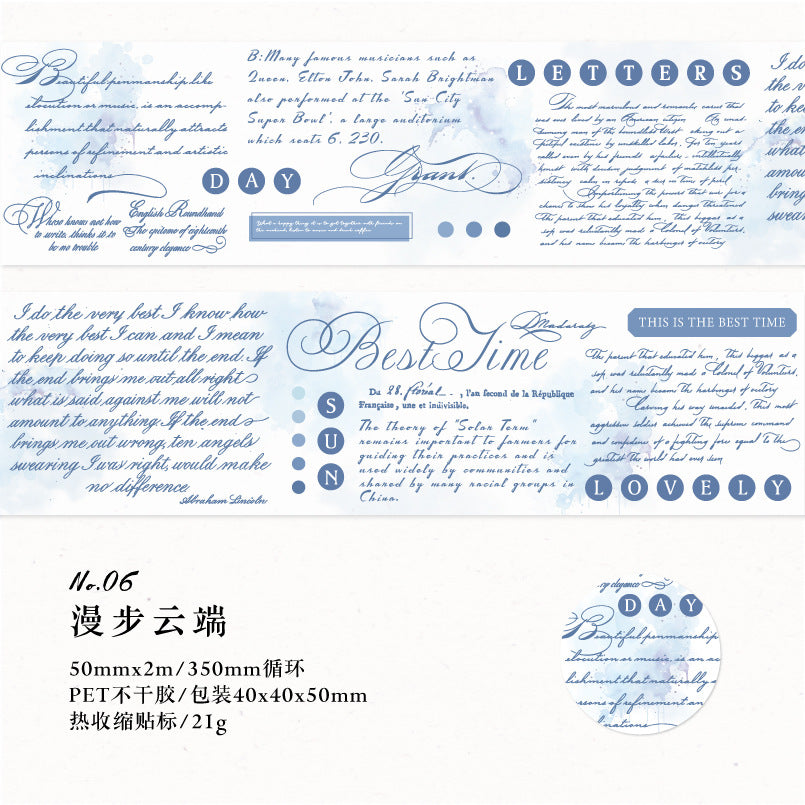 Beautiful penmanship like
elocution or music, is an accomp
lishment that naturally attracts
persons of refinement and artistic
inclinations
DAY
Whose knows not how
to write, thinks it to
be no trouble
English Roundhand
The epitome of eighteenth
century elegance
B:Many famous musicians such as
Queen, Elton John, Sarah Brightman
also performed at the 'Sun City
Super Bowl', a large auditorium
which seats 6, 230.
Grant.
What a happy thing it is to get together with friends on
the weekend, listen to music and drink coffee
LETTERS
The most marvelous and romantic career that
was ever lived by an American citizen
I do
the
to k
the e
what
amou
brings
swear
I do the very best I know how
the very best I can and I mean
to keep doing so until the end. If
the end brings me out all right
what is said against me will not
amount to anything. If the end
brings me out wrong, ten angels
swearing I was right, would make
no difference
Abraham Lincoln
Best Time
Madarasz
SUN
Du 28. floréal , l'an second de la République
Française , une et indivisible.
The theory of "Solar Term"
remains important to farmers for
guiding their practices and is
used widely by communities and
shared by many racial groups in
China.
THIS IS THE BEST TIME
The parent that educated him, this beggar as a
sop was reluctantly made a Colonel of Volunteers,
and his name became the harbinger of victory
Carving his way unaided, this most
aggressive soldier achieved the supreme command
and confidence of a fighting force equal to the
greatest the world had ever seen
LOVELY
No.06
漫步云端
50mmx2m/350mm循环
PET不干胶/包装40x40x50mm
热收缩贴标/21g
ry elegance
DAY
Beautiful penmanship
elocution or music, is an ac
lishment that naturally a
rsons of refinement an
lnations